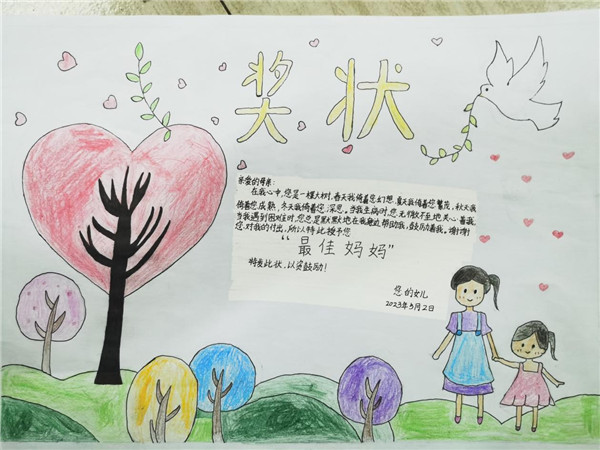 奖状
亲爱的母亲：
在我心中，您是一棵大树，春天我倚着您幻想，夏天我倚着您繁茂，秋天我
倚着您成熟，冬天我倚着您深思。当我生病时，您无微不至地关心着我，
当我遇到困难时，您总是默默地在我身边帮助我，鼓励着我。谢谢
您对我的付出，所以特此授予您
“最佳妈妈”
特发此状，以资鼓励！
您的女儿
2023年5月2日